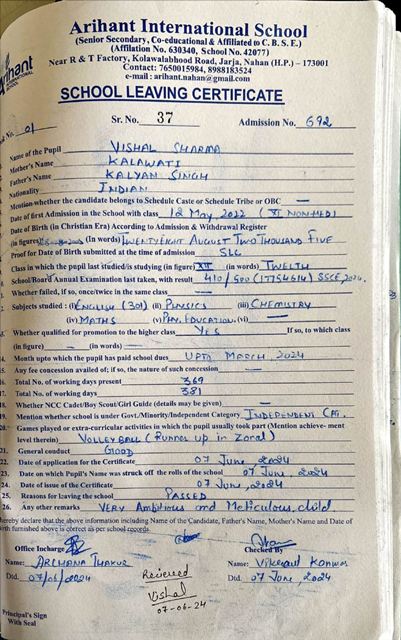 Arihant International School
(Senior Secondary, Co-educational & Affiliated to C. B. S. E.)
(Affilation No. 630340, School No. 42077)
Near R & T Factory, Kolawalabhood Road, Jarja, Nahan (H.P.) – 173001
Contact: 7650015984, 8988183524
e-mail : arihant.nahan@gmail.com
Arihant
SCHOOL LEAVING CERTIFICATE
Sr. No. 37 Admission No. 692
No. 01
Name of the Pupil VISHAL SHARMA
Mother's Name KALAWATI
Father's Name KALYAN SINGH
Nationality INDIAN
Mention-whether the candidate belongs to Schedule Caste or Schedule Tribe or OBC —
Date of first Admission in the School with class 12 May 2022 (XI NONMED)
Date of Birth (in Christian Era) According to Admission & Withdrawal Register
(in figures) 28-8-2005 (In words) TWENTY EIGHT AUGUST TWO THOUSAND FIVE
Proof for Date of Birth submitted at the time of admission SLC
Class in which the pupil last studied/is studying (in figure) XII (in words) TWELTH
School/Board Annual Examination last taken, with result 410/500 (17754614) SSCE, 2024.
Whether failed, if so, once/twice in the same class —
Subjects studied : (i) ENGLISH (301) (ii) PHYSICS (iii) CHEMISTRY
(iv) MATHS (v) PHY. EDUCATION (vi) —
Whether qualified for promotion to the higher class YES If so, to which class
(in figure) — (in words) —
14. Month upto which the pupil has paid school dues UPTO MARCH, 2024
15. Any fee concession availed of; if so, the nature of such concession —
16. Total No. of working days present 369
17. Total No. of working days 381
18. Whether NCC Cadet/Boy Scout/Girl Guide (details may be given) —
19. Mention whether school is under Govt./Minority/Independent Category INDEPENDENT CAT.
20. Games played or extra-curricular activities in which the pupil usually took part (Mention achieve- ment
level therein) VOLLEYBALL (Runner up in Zonal)
21. General conduct GOOD
22. Date of application for the Certificate 07 June 2024
23. Date on which Pupil's Name was struck off the rolls of the school 07 June, 2024
24. Date of issue of the Certificate 07 June, 2024
25. Reasons for leaving the school PASSED
26. Any other remarks VERY Ambitious and Meticulous child
hereby declare that the above information including Name of the Candidate, Father's Name, Mother's Name and Date of
Birth furnished above is correct as per school records.
Office Incharge Checked By
Name: ARCHANA THAKUR Name: Vikrant Kanwar
Dtd. 07/06/2024 Dtd. 07 June, 2024
Recieved
Vishal
07-06-24
Principal's Sign
With Seal